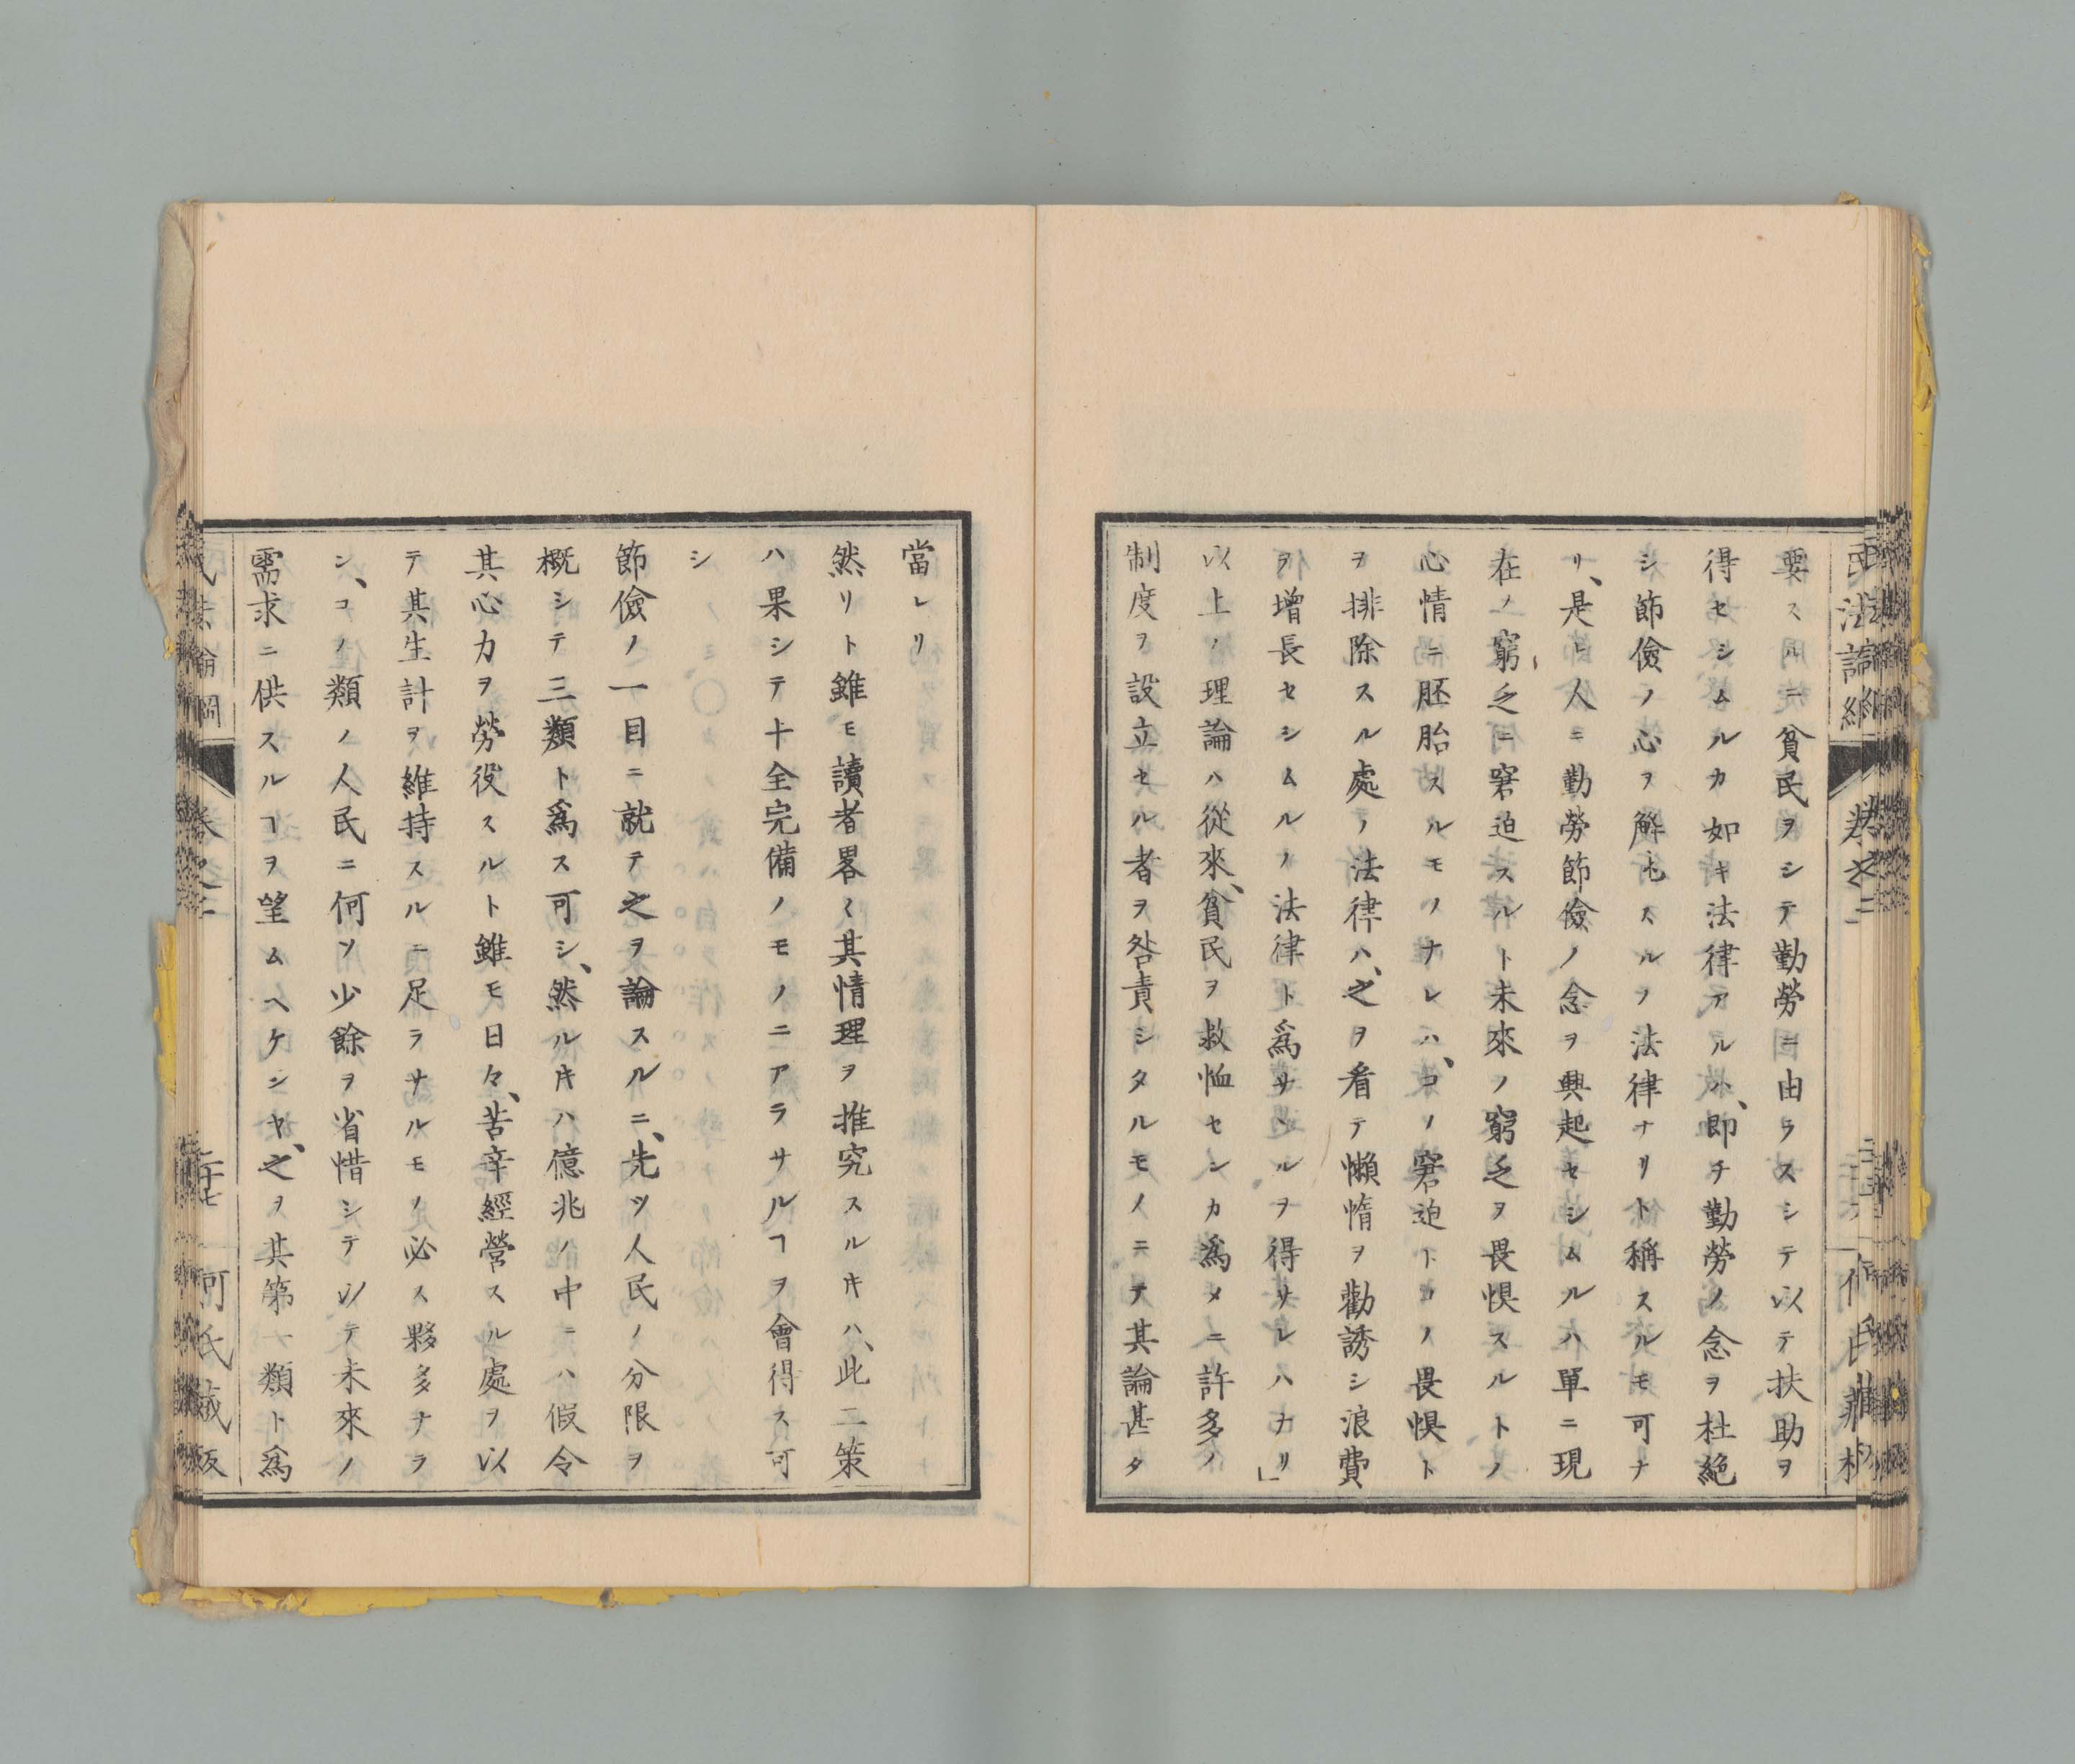 要スルニ貧民ヲシテ勤勞ニ由ラスシテ以テ扶助ヲ
得セシムルカ如キ法律アルハ、即チ勤勞ノ念ヲ杜絶
シ節儉ノ心ヲ解弛スルノ法律ナリト稱スルモ可ナ
リ、是レ人ニ勤勞節儉ノ念ヲ興起セシムルハ單ニ現
在ノ窮乏ニ窘迫スルト未來ノ窮乏ヲ畏惧スルトノ
心情ニ胚胎スルモノナレハ、コノ窘迫トコノ畏惧ト
ヲ排除スル處ノ法律ハ、之ヲ看テ懶惰ヲ勸誘シ浪費
ヲ増長セシムルノ法律ト爲サヽルヲ得サレハナリ」
以上ノ理論ハ從來、貧民ヲ救恤センカ爲メニ許多ノ
制度ヲ設立セル者ヲ咎責シタルモノニテ其論甚タ
當レリ
然リト雖モ讀者畧〻其情理ヲ推究スルキハ、此二策
ハ果シテ十全完備ノモノニアラサルヿヲ會得ス可
シ
節儉ノ一目ニ就テ之ヲ論スルニ、先ツ人民ノ分限ヲ
概シテ三類ト爲ス可シ、然ルキハ億兆ノ中ニハ假令
其心力ヲ勞役スルト雖モ日々、苦辛經營スル處ヲ以
テ其生計ヲ維持スルニ足ラサルモノ必ス夥多ナラ
ン、コノ類ノ人民ニ何ソ少餘ヲ省惜シテ以テ未來ノ
需求ニ供スルヿヲ望ムヘケンヤ、之ヲ其第一類ト爲
民法論綱 卷之二 二十七 何氏藏版